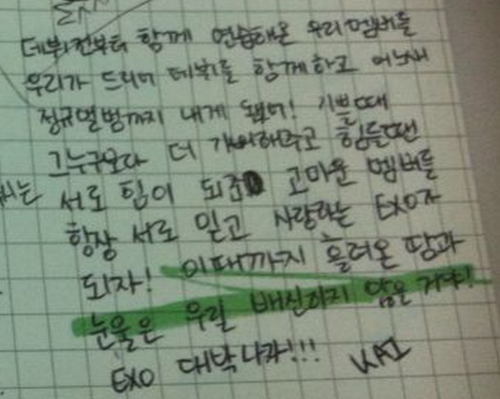 데뷔전부터 함께 연습해온 우리 멤버들
우리가 드디어 데뷔를 함께하고 어느새
정규앨범까지 내게 됐어! 기쁠때
그누구보다 더 기뻐해주고 힘들땐
서로 힘이 되준 고마운 멤버들
항상 서로 믿고 사랑하는 EXO가
되자! 이때까지 흘려온 땀과
눈물은 우릴 배신하지 않을 거야!
EXO 대박나자!!! KAI